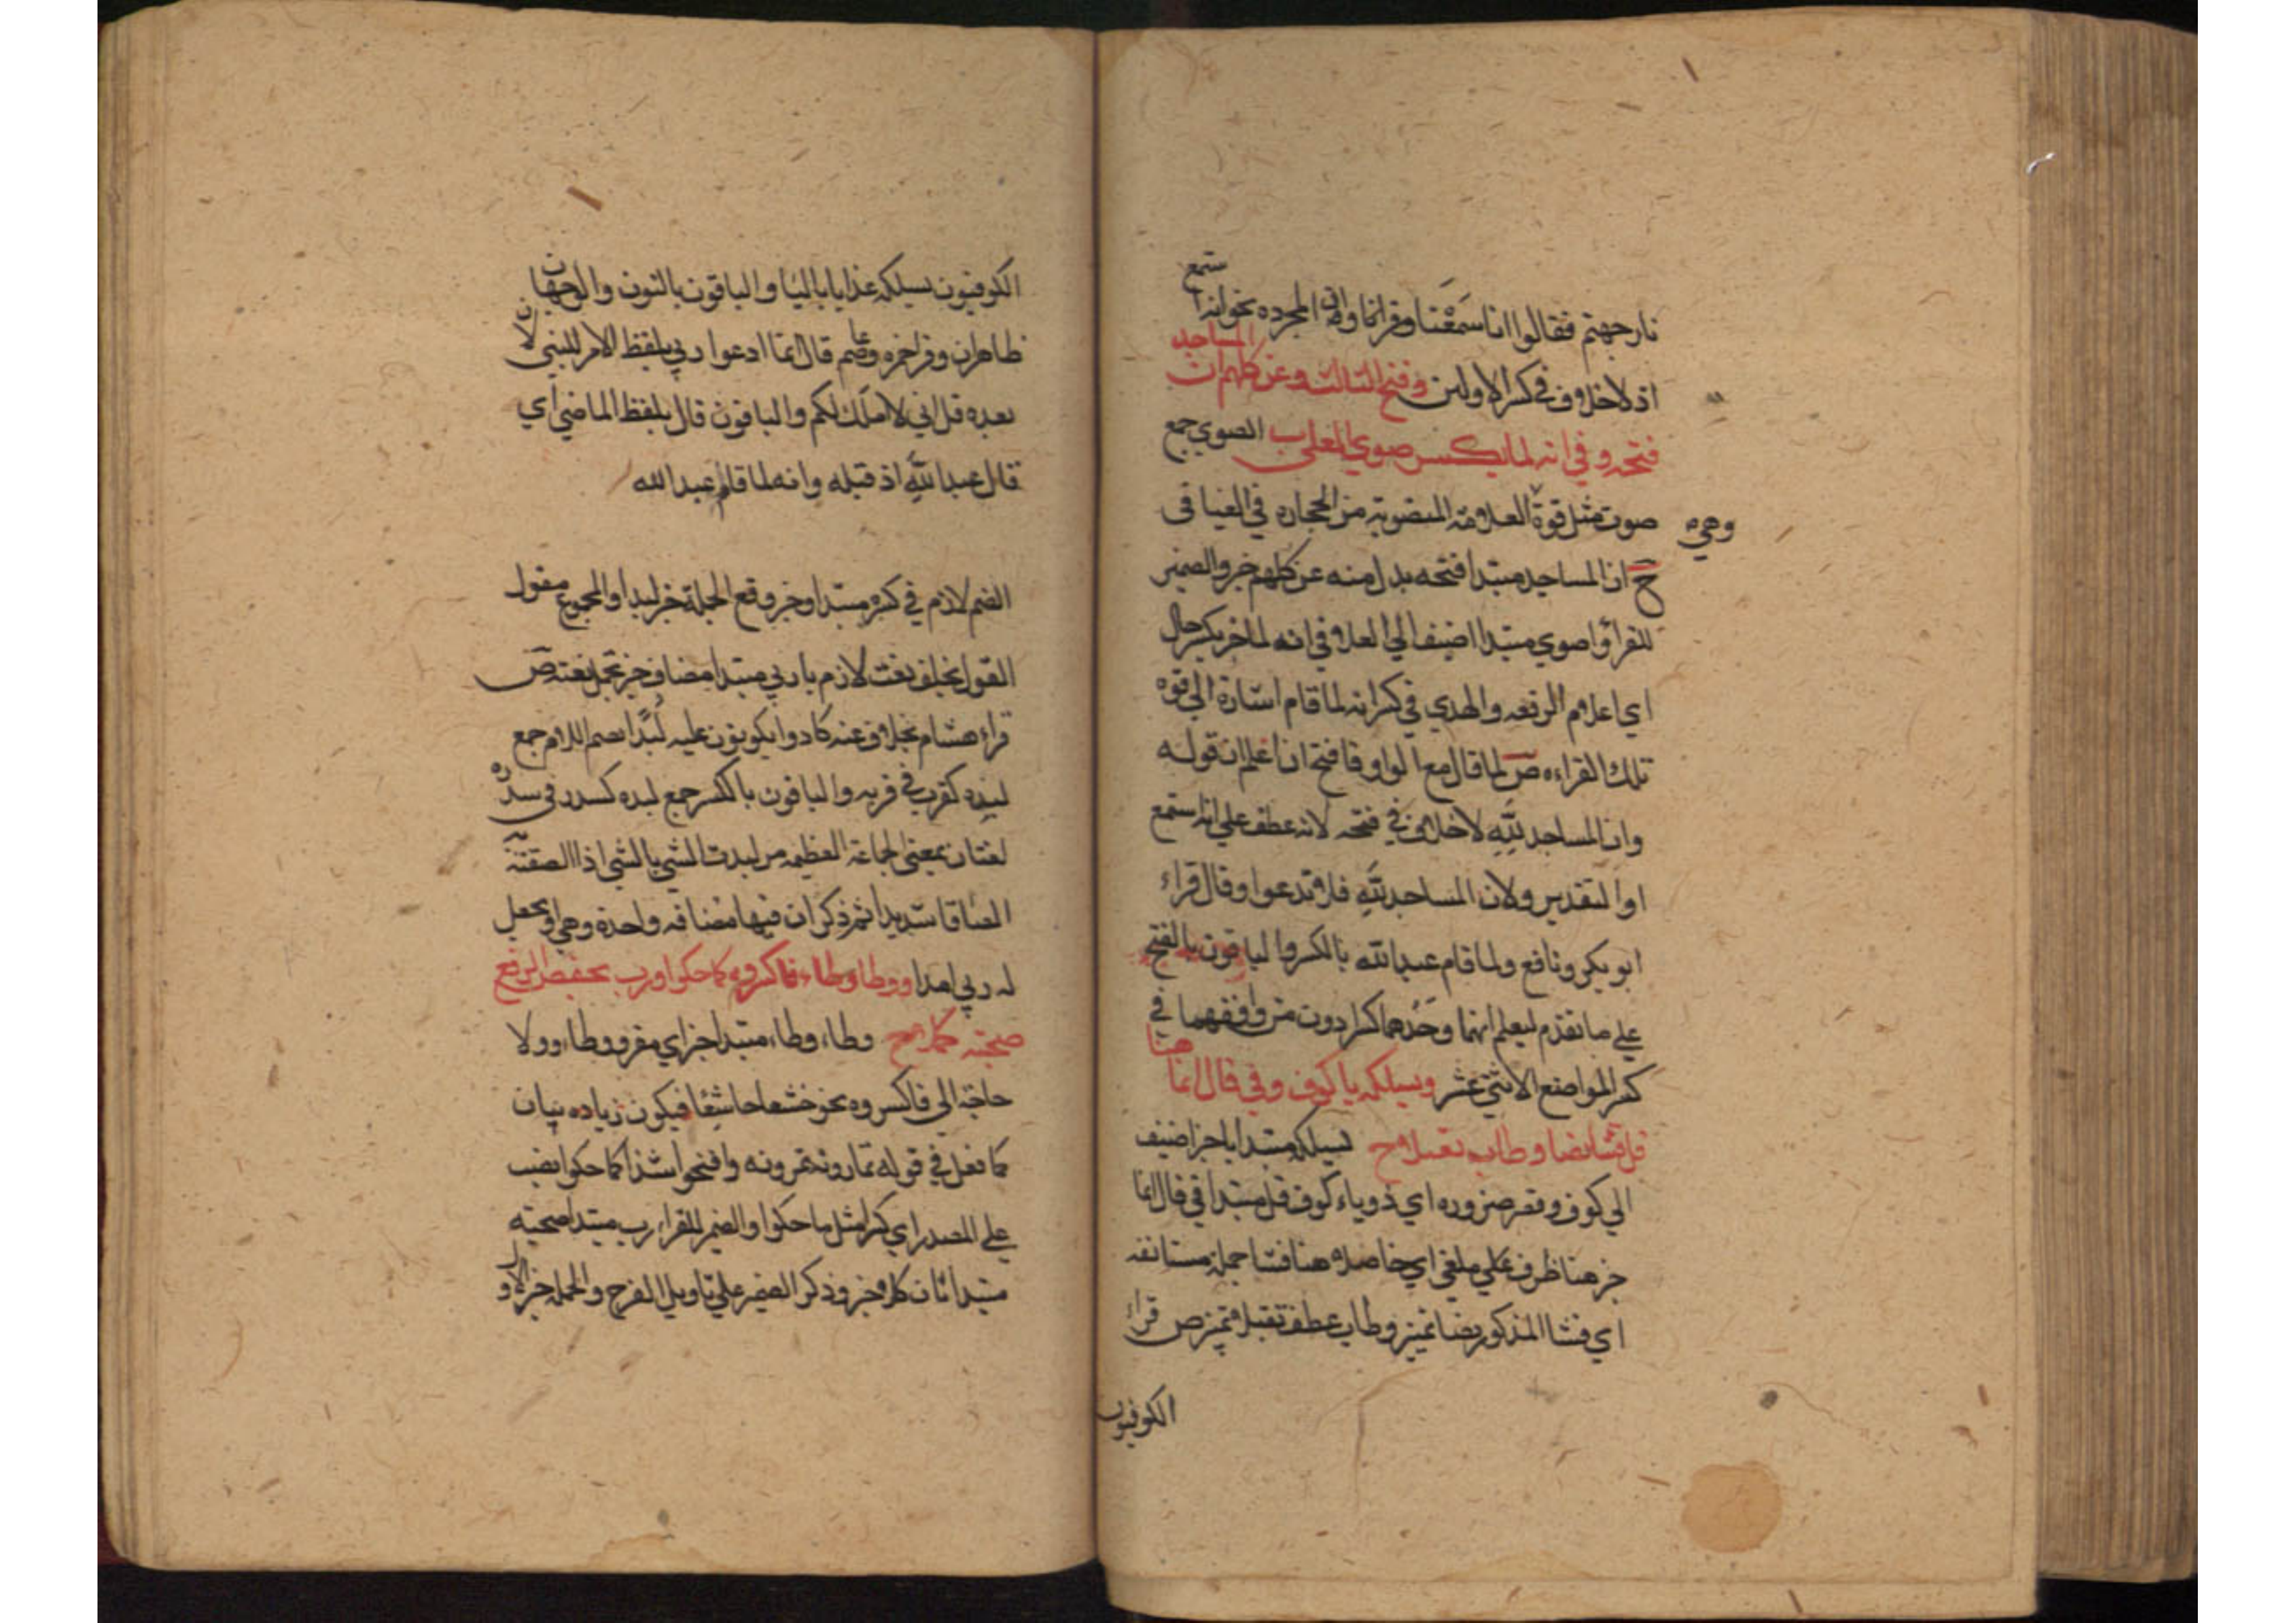 نار جهنم فقالوا انا سمعنا وقرانا وان المجرده نحو انه استمع
اذ لا خلاف في كسر الاولين وفتح الثالثه وعن كلهم ان المساجد
فتحه وفي انه لما بكسر صوي العلى ب الصوي جمع
صوت مثل قوة العلامة المنصوبة من الحجاره في الفيافى وهي
ح ان المساجد مبتدا فتحه بدل منه عن كلهم خبر والضمير
للقرا صوي مبتدا اضيف الى العلا في انه لما خبر بكسر حال
اي اعلام الرفعه والهدي في كسر انه لما قام اشارة الي قوه
تلك القراءه ص لما قال مع الواو فافتح ان اعلم ان قوله
وان المساجد لله لا خلاف في فتحه لانه عطف علي انه استمع
او التقدير ولان المساجد لله فلا تدعوا وقال قراء
ابو بكر ونافع ولما قام عبد الله بالكسر والباقون بالفتح
علي ما تقدم ليعلم انهما وحدهما كسرا دون من وافقهما في
كسر المواضع الاثني عشر ونسلكه يا كوف وفي قال انما هنا
قل فشا نصا وطاب تقبلا ح نسلكه مبتدا يا خبر اضيف
الي كوف وقصر ضروره اي ذو ياء كوف قل مبتدا في قال انما
خبر هنا ظرف علي ملغي اي حاصله هنا فشا جملة مستانفه
اي فشا المذكور نصا تميز وطاب عطف تقبلا تميز ص قراء
الكوفيون
الكوفيون يسلكه عذابا باليا والباقون بالنون والوجهان
ظاهران وقرا حمزه وعاصم قال انما ادعوا ربي بلفظ الامر للنبي لان
بعده قل اني لا املك لكم والباقون قال بلفظ الماضي اي
قال عبد الله اذ قبله وانه لما قام عبد الله
الضم لازم في كسره مبتدا وخبر وقع الجملة خبر لبدا والمجموع مقول
القول بخلف نعت لازم يا ربي مبتدا مضاف خبر تجمل نعته ص
قراء هشام بخلاف عنه كادوا يكونون عليه لبدا بضم اللام جمع
لبده كقرب في قربه والباقون بالكسر جمع لبده كسدر في سدره
لغتان بمعني الجماعة العظيمه من لبدت الشي بالشي اذا الصقته به
الصاقا شديدا ثم ذكر ان فيها مضافه واحدة وهي ويجعل
له ربي امدا ووطا وطاء فاكسروه كما حكوا ورب بخفض الرفع
صحبته كلا ح وطاء وطاء مبتدا خبر اي مقرو وطاء وولا
حاجة الي فاكسروه نحو خشعا خاشعا فيكون زياده بيان
كما فعل في قوله تمارونه تمرونه وافتحوا شذا كما حكوا نصب
علي المصدر اي كسرا مثل ما حكوا والضمير للقرا رب مبتدا صحبته
مبتدا ثان كلا خبر وذكر الضمير علي تاويل الفرج والجمله خبر الاول